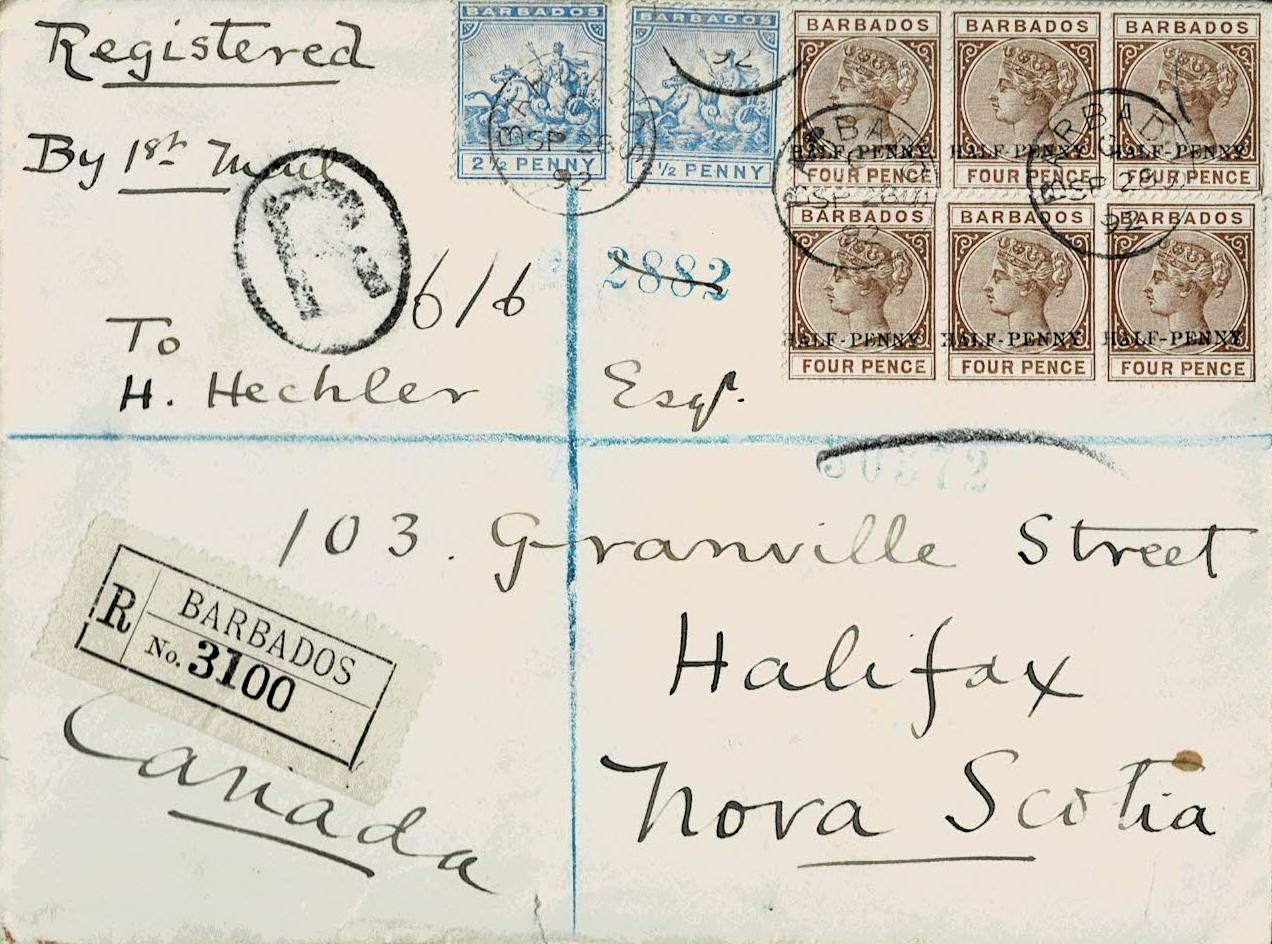 Registered
By 1st Mail
R
6/6
To
H. Hechler Esqr.
103. Granville Street
Halifax
Nova Scotia
Canada
R BARBADOS
No. 3100
2882
50372
BARBADOS
2½ PENNY
BARBADOS
½ PENNY
BARBADOS SP 28 92
92
BARBADOS BARBADOS BARBADOS
HALF-PENNY HALF-PENNY HALF-PENNY
FOUR PENCE FOUR PENCE FOUR PENCE
BARBADOS BARBADOS BARBADOS
HALF-PENNY HALF-PENNY HALF-PENNY
FOUR PENCE FOUR PENCE FOUR PENCE
BARBADOS SP 28 92
BARBADOS SP 28 92